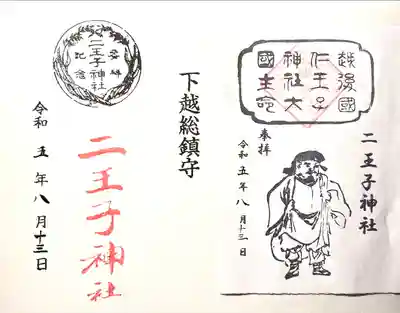 越後國
仁王子
神社大
國主命
二王子神社
奉拝
令和五年八月十三日
下越総鎮守
参拝
二王子神社
記念
二王子神社
令和五年八月十三日